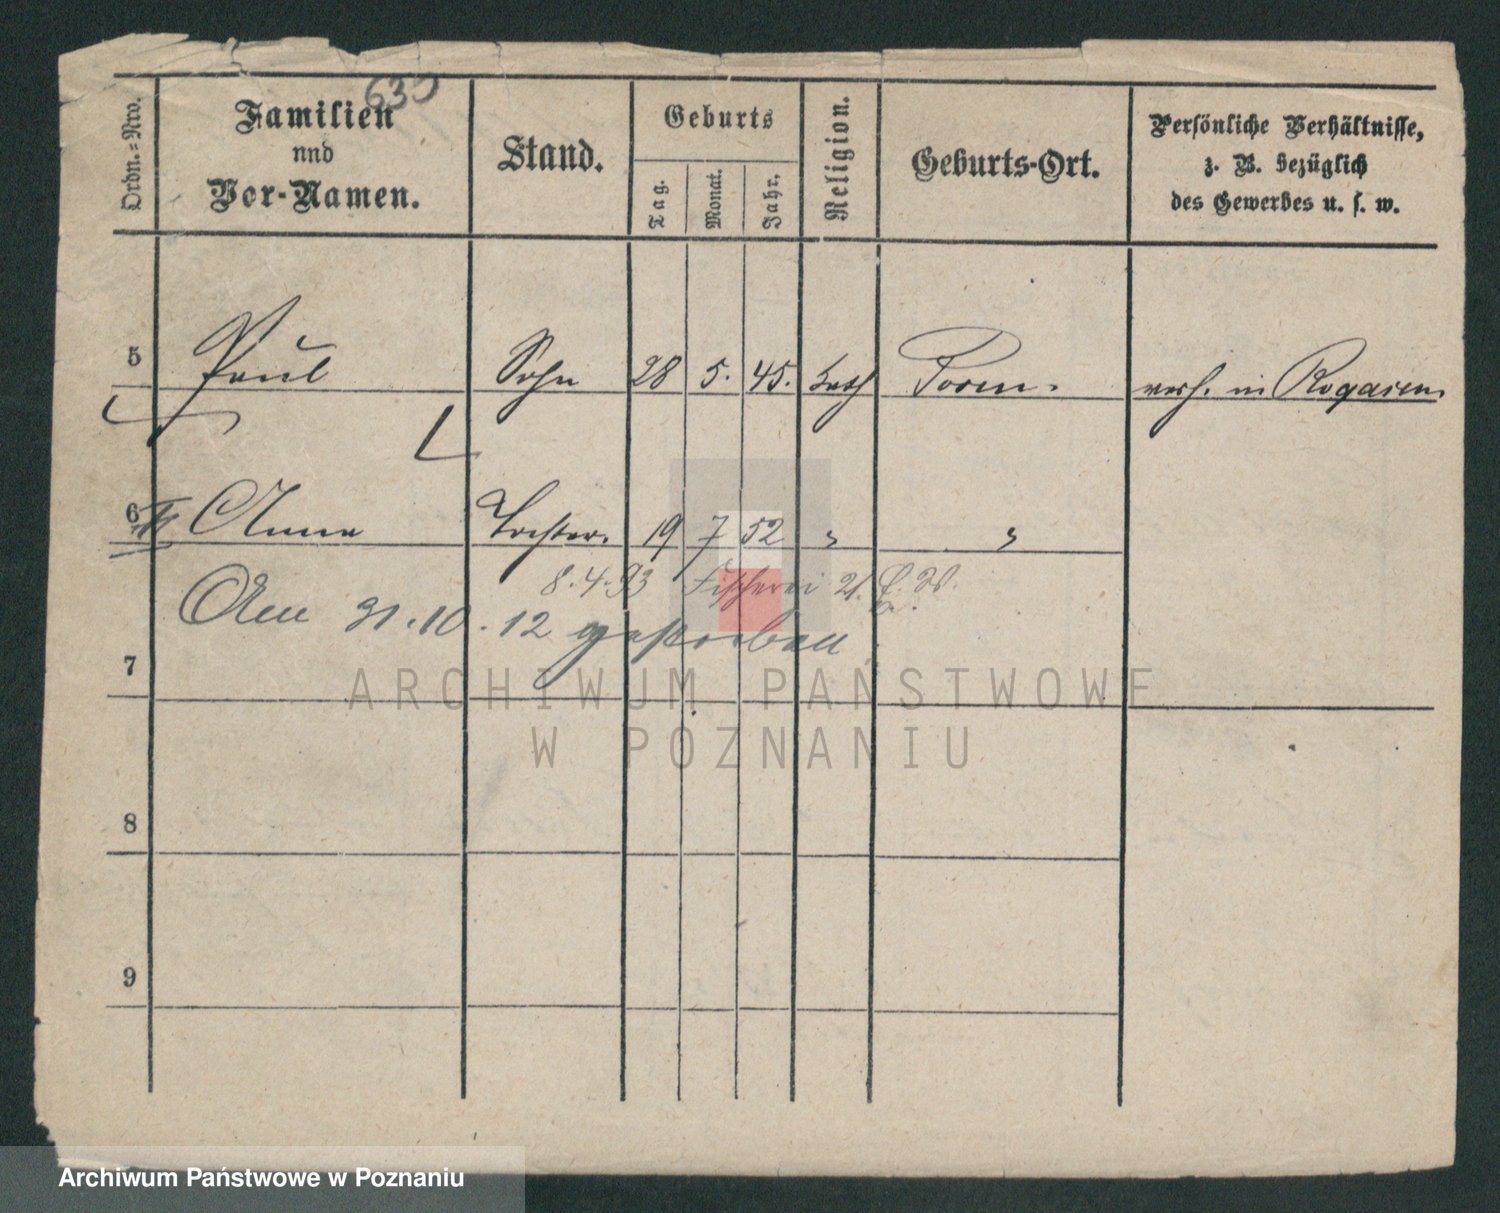 635
Ordn.=Nro.
Familien
und
Vor-Namen.
Stand.
Geburts
Tag.
Monat.
Jahr.
Religion.
Geburts-Ort.
Persönliche Verhältnisse,
z. B. bezüglich
des Gewerbes u. s. w.
5 Paul Sohn 28 5. 45. kath Posen. verh. in Rogasen.
6 Anna Tochter. 19 7 52 " "
8.4.93 Fischerei 21.
Am 31.10.12 gestorben
7
8
9
ARCHIWUM PAŃSTWOWE
W POZNANIU
Archiwum Państwowe w Poznaniu